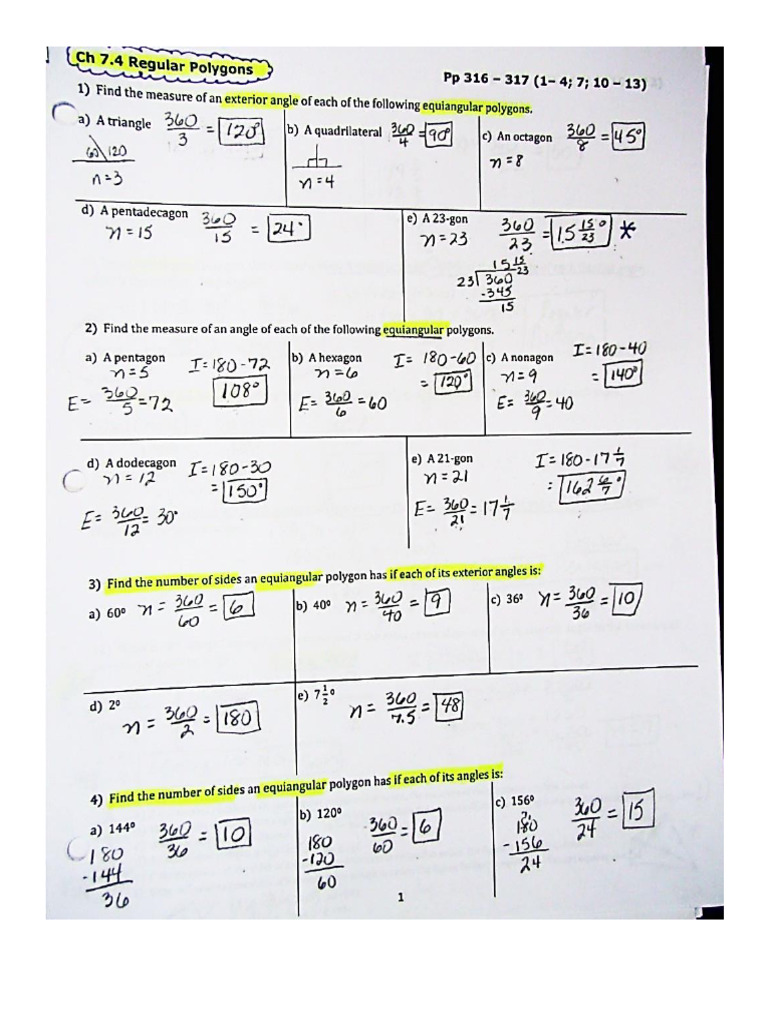 Ch 7.4 Regular Polygons
Pp 316 – 317 (1– 4; 7; 10 – 13)
1) Find the measure of an exterior angle of each of the following equiangular polygons.
a) A triangle 360/3 = 120°
60 120
n=3
b) A quadrilateral 360/4 = 90°
n=4
c) An octagon 360/8 = 45°
n=8
d) A pentadecagon 360/15 = 24°
n=15
e) A 23-gon 360/23 = 15 15/23° *
n=23
15 15/23
23 360
-345
15
2) Find the measure of an angle of each of the following equiangular polygons.
a) A pentagon I=180-72
n=5 108°
E= 360/5 =72
b) A hexagon I= 180-60
n=6 = 120°
E= 360/6 =60
c) A nonagon I=180-40
n=9 = 140°
E= 360/9 =40
d) A dodecagon I=180-30
n=12 = 150°
E= 360/12 = 30°
e) A 21-gon I=180-17 1/7
n=21 = 162 6/7°
E= 360/21 =17 1/7
3) Find the number of sides an equiangular polygon has if each of its exterior angles is:
a) 60º n= 360/60 = 6
b) 40º n= 360/40 = 9
c) 36º n= 360/36 = 10
d) 2º
n= 360/2 = 180
e) 7 1/2 º
n= 360/7.5 = 48
4) Find the number of sides an equiangular polygon has if each of its angles is:
a) 144º 360/36 = 10
180
-144
36
b) 120º 360/60 = 6
180
-120
60
c) 156º 360/24 = 15
180
-156
24
1